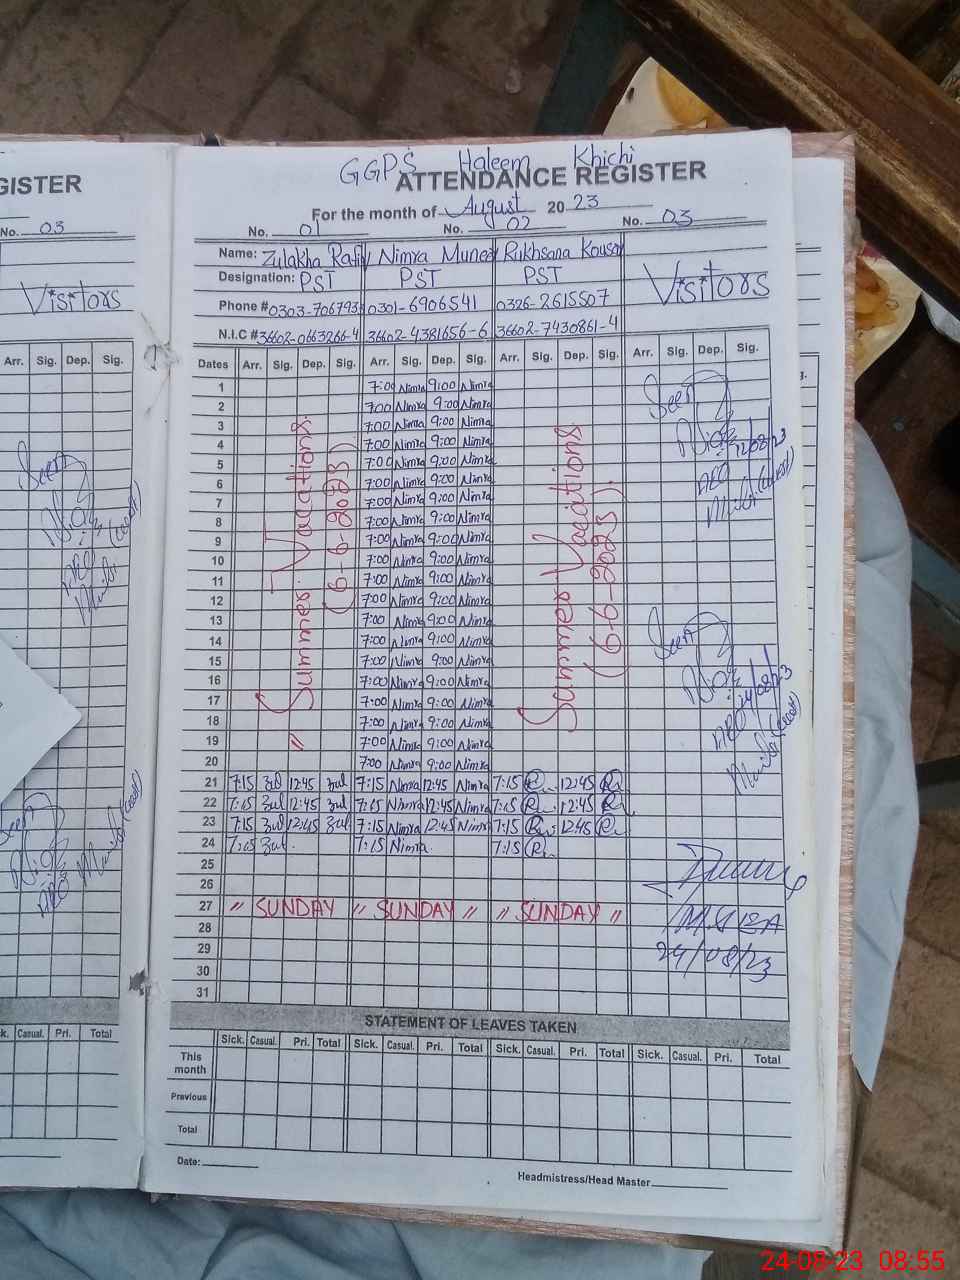 GISTER
No. 03
Visitors
Arr. Sig. Dep. Sig.
Seen
k. Casual. Pri. Total
GGPS Haleem Khichi
ATTENDANCE REGISTER
For the month of August 20 23
No. 01 No. 02 No. 03
Name: Zulakha Rafiq Nimra Muneer Rukhsana Kousar
Designation: PST PST PST Visitors
Phone # 0303-706793 0301-6906541 0326-2615507
N.I.C # 36602-0663266-4 36602-4381656-6 36602-7430861-4
Dates Arr. Sig. Dep. Sig. Arr. Sig. Dep. Sig. Arr. Sig. Dep. Sig. Arr. Sig. Dep. Sig.
Summer Vacations
(6-6-2023)
Summer Vacations
(6-6-2023)
1 7:00 Nimra 9:00 Nimra
2 7:00 Nimra 9:00 Nimra
3 7:00 Nimra 9:00 Nimra
4 7:00 Nimra 9:00 Nimra
5 7:00 Nimra 9:00 Nimra
6 7:00 Nimra 9:00 Nimra
7 7:00 Nimra 9:00 Nimra
8 7:00 Nimra 9:00 Nimra
9 7:00 Nimra 9:00 Nimra
10 7:00 Nimra 9:00 Nimra
11 7:00 Nimra 9:00 Nimra
12 7:00 Nimra 9:00 Nimra
13 7:00 Nimra 9:00 Nimra
14 7:00 Nimra 9:00 Nimra
15 7:00 Nimra 9:00 Nimra
16 7:00 Nimra 9:00 Nimra
17 7:00 Nimra 9:00 Nimra
18 7:00 Nimra 9:00 Nimra
19 7:00 Nimra 9:00 Nimra
20 7:00 Nimra 9:00 Nimra
21 7:15 Zul 12:45 Zul 7:15 Nimra 12:45 Nimra 7:15 12:45
22 7:15 Zul 12:45 Zul 7:15 Nimra 12:45 Nimra 7:15 12:45
23 7:15 Zul 12:45 Zul 7:15 Nimra 12:45 Nimra 7:15 12:45
24 7:15 Zul 7:15 Nimra 7:15
25
26
27 " SUNDAY " SUNDAY " " SUNDAY "
28
29
30
31
Seen
12/08/23
Seen
14/08/23
24/08/23
STATEMENT OF LEAVES TAKEN
Sick. Casual. Pri. Total Sick. Casual. Pri. Total Sick. Casual. Pri. Total Sick. Casual. Pri. Total
This month
Previous
Total
Date:
Headmistress/Head Master
24-08-23 08:55